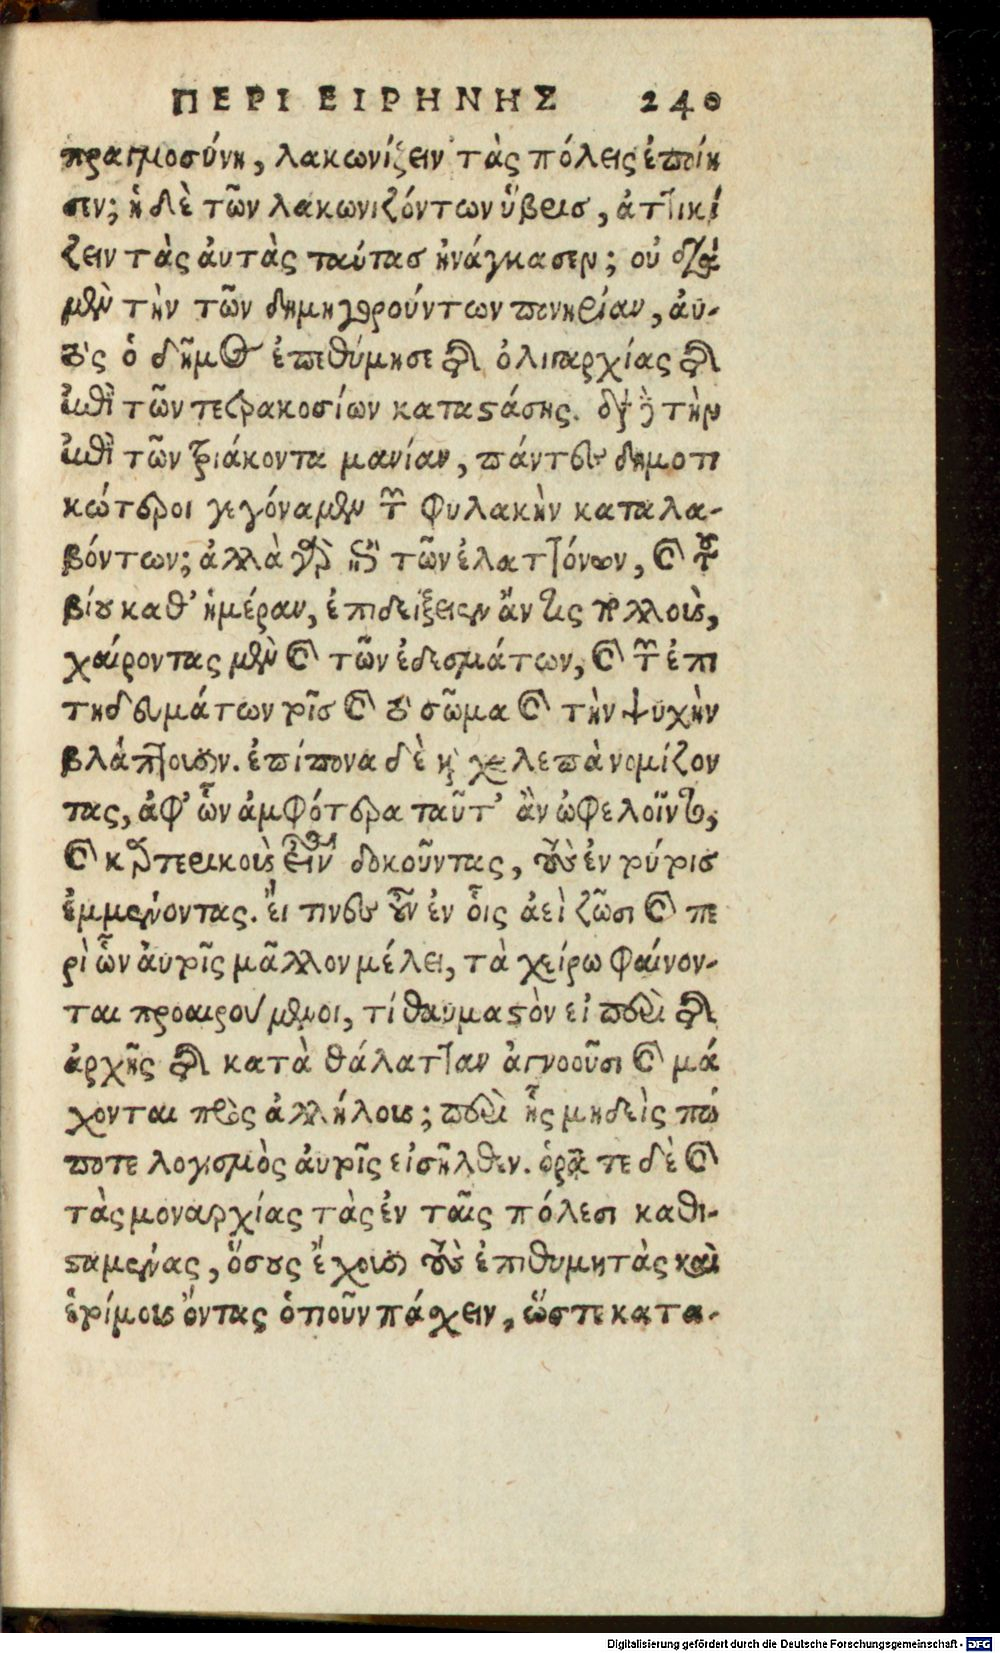 ΠΕΡΙ ΕΙΡΗΝΗΣ 240
πραγμοσύνη, λακωνίζειν τὰς πόλεις ἐποίη
σεν; ἡ δὲ τῶν λακωνιζόντων ὕβρις, ἀττικί
ζειν τὰς ἀυτὰς ταύτας ἠνάγκασεν; οὐ διὰ
μὲν τὴν τῶν δημηγορούντων πονηρίαν, ἀυ-
τὸς ὁ δῆμος ἐπεθύμησε τῆς ὀλιγαρχίας τῆς
ἐπὶ τῶν τετρακοσίων καταστάσης. διὰ δὲ τὴν
ἐπὶ τῶν τριάκοντα μανίαν, πάντες δημοτι
κώτεροι γεγόναμεν τῶν φυλακὴν καταλα-
βόντων; ἀλλὰ γὰρ ἐπὶ τῶν ἐλαττόνων, καὶ τοῦ
βίου καθ' ἡμέραν, ἐπιδείξειεν ἄν τις τοὺς πολλοὺς,
χαίροντας μὲν καὶ τῶν ἐδεσμάτων, καὶ τῶν ἐπι
τηδευμάτων τοῖς καὶ τὸ σῶμα καὶ τὴν ψυχὴν
βλάπτουσιν. ἐπίπονα δὲ καὶ χαλεπὰ νομίζον
τας, ἀφ' ὧν ἀμφότερα ταῦτ' ἂν ὠφελοῖντο,
καὶ καρτερικοὺς εἶναι δοκοῦντας, τοὺς ἐν τούτοις
ἐμμένοντας. εἴ τινες οὖν ἐν οἷς ἀεὶ ζῶσι καὶ πε
ρὶ ὧν ἀυτοῖς μᾶλλον μέλει, τὰ χείρω φαίνον-
ται προαιρούμενοι, τί θαυμαστὸν εἰ περὶ τῆς
ἀρχῆς τῆς κατὰ θάλατταν ἀγνοοῦσι καὶ μά
χονται πρὸς ἀλλήλους; περὶ ἧς μηδεὶς πώ
ποτε λογισμὸς ἀυτοῖς εἰσῆλθεν. ὁρᾶτε δὲ καὶ
τὰς μοναρχίας τὰς ἐν ταῖς πόλεσι καθι-
σταμένας, ὅσους ἔχουσι τοὺς ἐπιθυμητὰς καὶ
ἑτοίμους ὄντας ὁτιοῦν πάσχειν, ὥστε κατα-
Digitalisierung gefördert durch die Deutsche Forschungsgemeinschaft - DFG